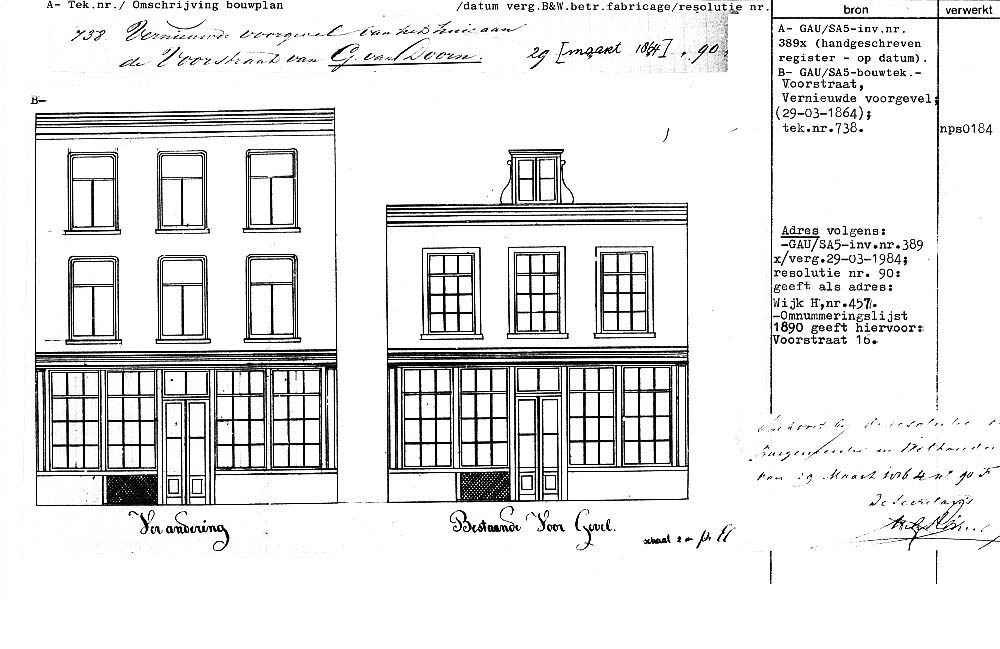 A- Tek.nr./ Omschrijving bouwplan
/datum verg.B&W.betr.fabricage/resolutie nr.
bron
verwerkt
738 Vernieuwde voorgevel van het huis aan
de Voorstraat van G. van Doorn. 29 [maart 1864] . 90
A- GAU/SA5-inv.nr.
389x (handgeschreven
register - op datum).
B- GAU/SA5-bouwtek.-
Voorstraat,
Vernieuwde voorgevel;
(29-03-1864);
tek.nr.738.
nps0184
B-
Adres volgens:
-GAU/SA5-inv.nr.389
x/verg.29-03-1984;
resolutie nr. 90:
geeft als adres:
Wijk H,nr.457.
-Omnummeringslijst
1890 geeft hiervoor:
Voorstraat 16.
Behoort bij de resolutie
Burgemeester en Wethouders
van 29 Maart 1864 no 90 F
De Secretaris
Verandering
Bestaande Voor Gevel.
schaal 2